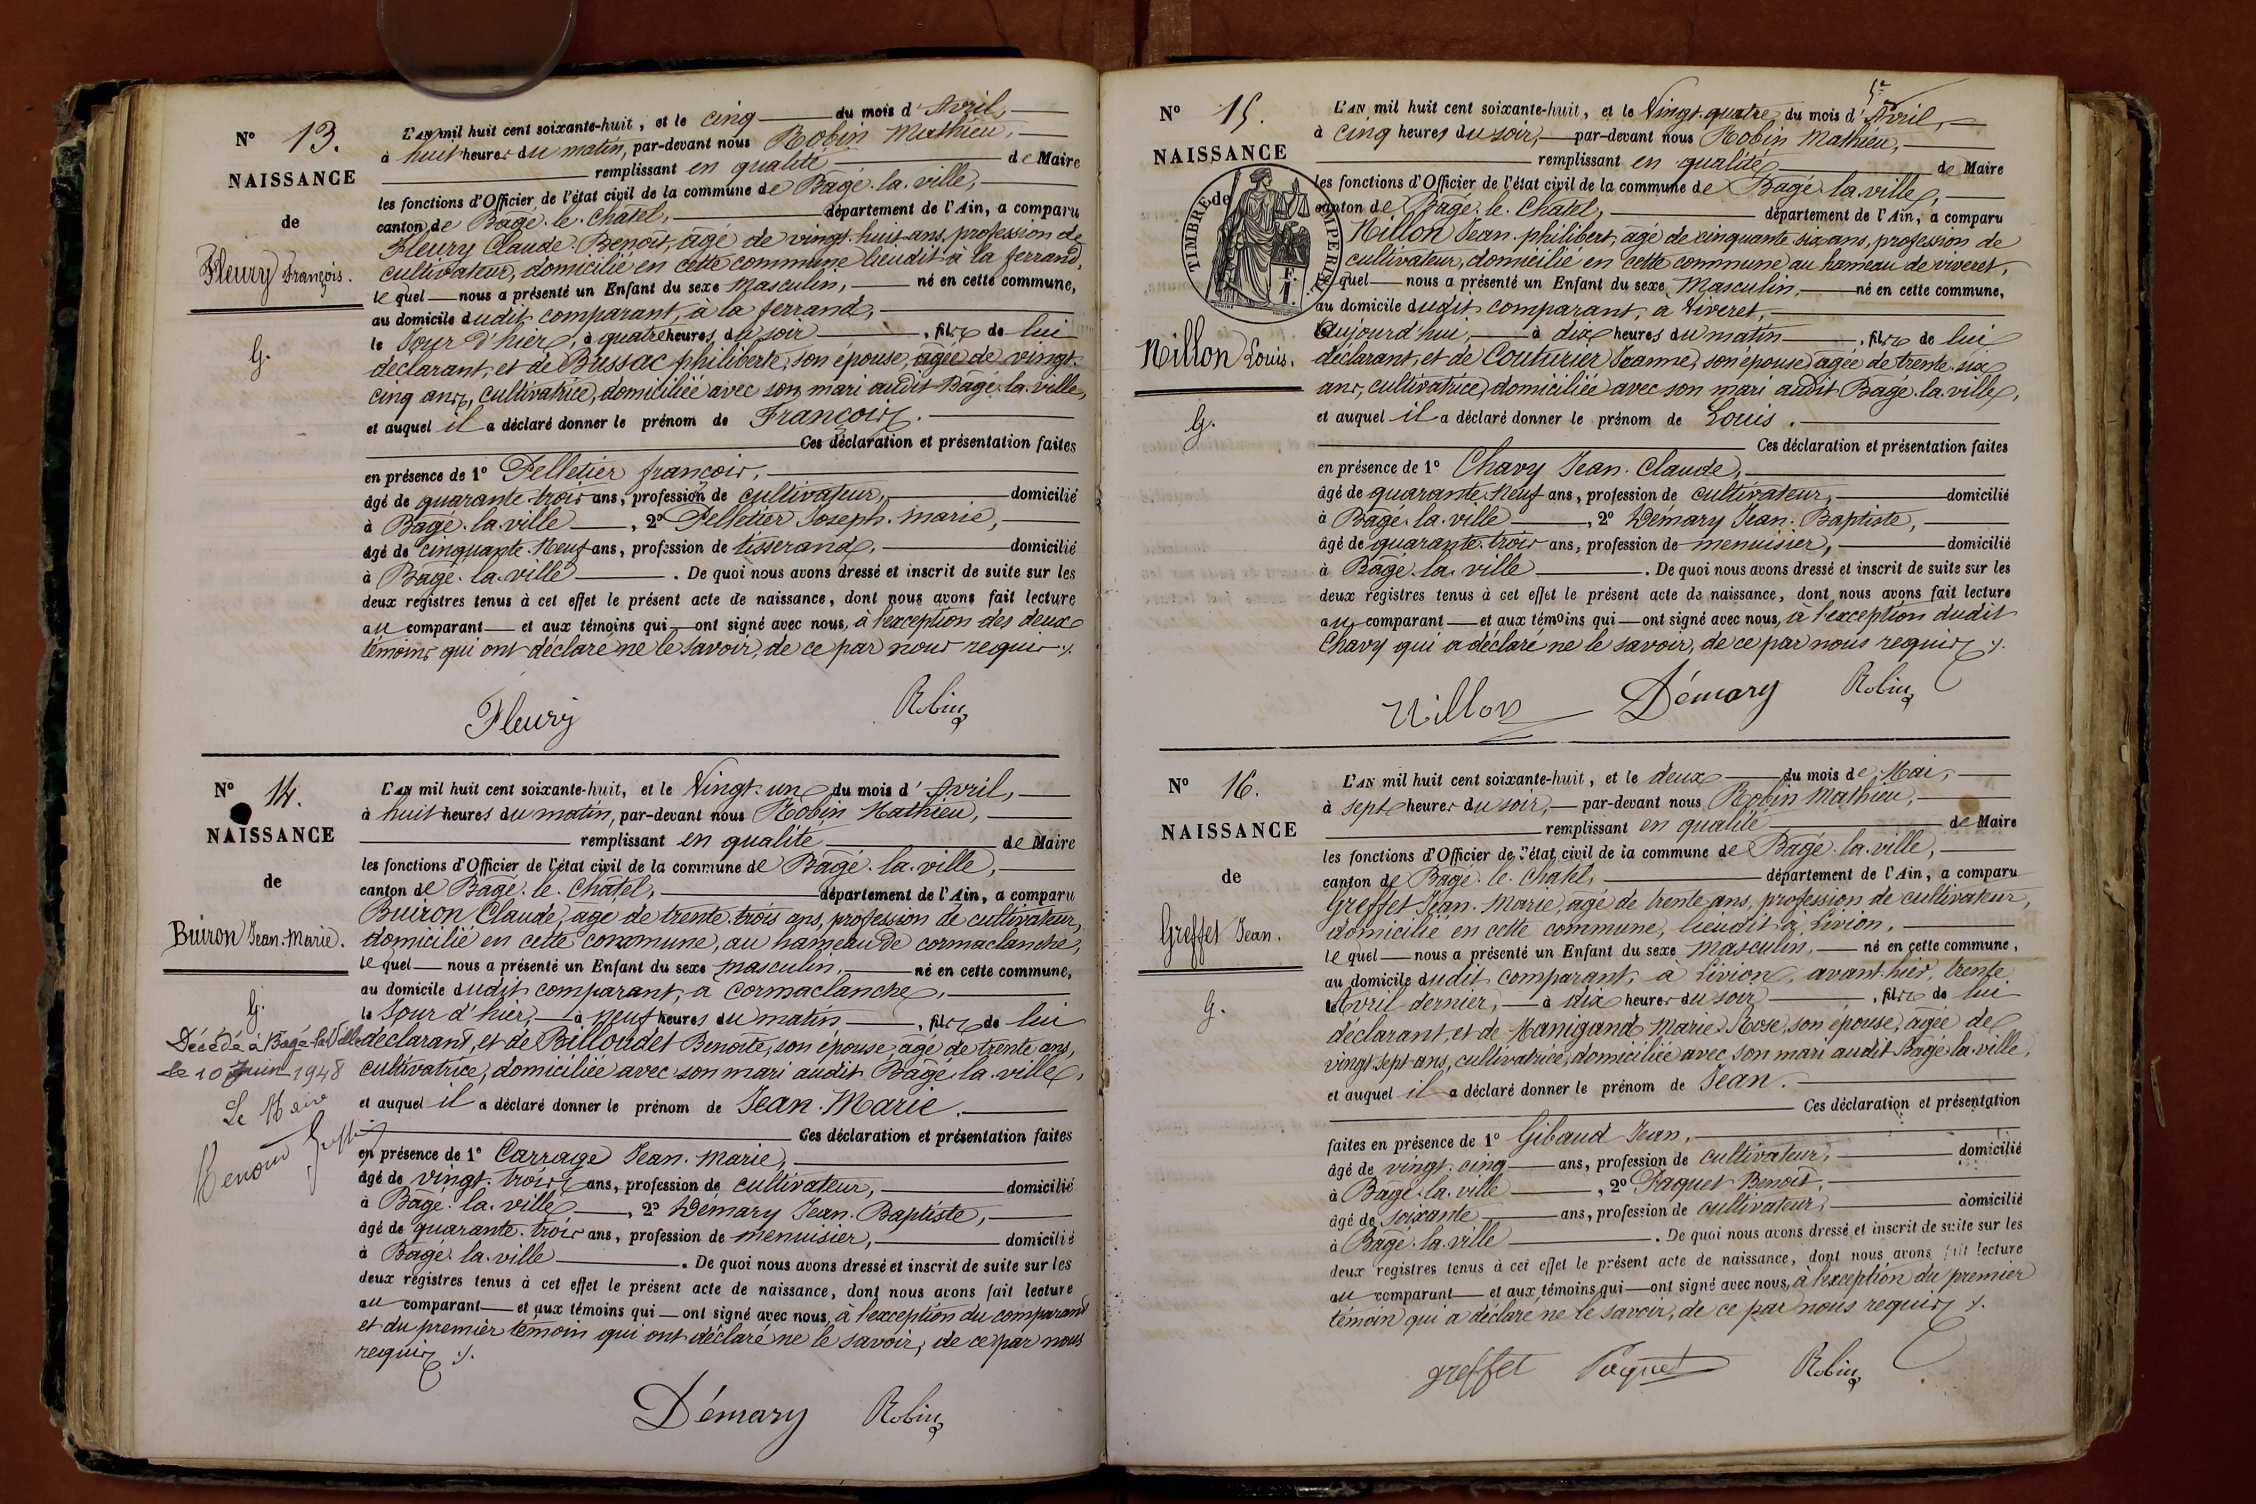 N° 13.
NAISSANCE
de
Fleury François.
G.
L'AN mil huit cent soixante-huit, et le cinq du mois d'Avril,
à huit heures du matin, par-devant nous Robin Mathieu,
remplissant en qualité de Maire
les fonctions d'Officier de l'état civil de la commune de Bâgé-la-ville,
canton de Bâgé-le-Châtel, département de l'Ain, a comparu
Fleury Claude-Benoit, âgé de vingt-huit ans, profession de
cultivateur, domicilié en cette commune lieudit à la ferrand,
lequel nous a présenté un Enfant du sexe Masculin, né en cette commune,
au domicile dudit comparant, à la ferrand,
le Jour d'hier, à quatre heures du soir, fils de lui
déclarant, et de Bussac philiberte, son épouse, âgée de vingt-
cinq ans, cultivatrice, domiciliée avec son mari audit Bâgé-la-ville,
et auquel il a déclaré donner le prénom de François.
Ces déclaration et présentation faites
en présence de 1° Pelletier françois,
âgé de quarante-trois ans, profession de cultivateur, domicilié
à Bâgé-la-ville, 2° Pelletier Joseph-Marie,
âgé de cinquante-Neuf ans, profession de tisserand, domicilié
à Bâgé-la-ville. De quoi nous avons dressé et inscrit de suite sur les
deux registres tenus à cet effet le présent acte de naissance, dont nous avons fait lecture
au comparant et aux témoins qui ont signé avec nous, à l'exception des deux
témoins qui ont déclaré ne le savoir, de ce par nous requis ./.
Fleury Robin
N° 14.
NAISSANCE
de
Buiron Jean-Marie.
G.
Décédé à Bâgé-la-Ville
le 10 Juin 1948
Le Maire
L'AN mil huit cent soixante-huit, et le Vingt-un du mois d'Avril,
à huit heures du matin, par-devant nous Robin Mathieu,
remplissant en qualité de Maire
les fonctions d'Officier de l'état civil de la commune de Bâgé-la-ville,
canton de Bâgé-le-Châtel, département de l'Ain, a comparu
Buiron Claude, âgé de trente-trois ans, profession de cultivateur,
domicilié en cette commune, au hameau de cormaclanche,
lequel nous a présenté un Enfant du sexe masculin, né en cette commune,
au domicile dudit comparant, à Cormaclanche,
le Jour d'hier, à neuf heures du matin, fils de lui
déclarant, et de Billoudet Benoite, son épouse, âgé de trente ans,
cultivatrice, domiciliée avec son mari audit Bâgé-la-ville,
et auquel il a déclaré donner le prénom de Jean-Marie.
Ces déclaration et présentation faites
en présence de 1° Carrage Jean-Marie,
âgé de vingt-trois ans, profession de cultivateur, domicilié
à Bâgé-la-ville, 2° Démary Jean-Baptiste,
âgé de quarante-trois ans, profession de menuisier, domicilié
à Bâgé-la-ville. De quoi nous avons dressé et inscrit de suite sur les
deux registres tenus à cet effet le présent acte de naissance, dont nous avons fait lecture
au comparant et aux témoins qui ont signé avec nous, à l'exception du comparant
et du premier témoin qui ont déclaré ne le savoir, de ce par nous
requis ./.
Démary Robin
N° 15.
NAISSANCE
de
TIMBRE IMPERIAL
Nillon Louis.
G.
L'AN mil huit cent soixante-huit, et le Vingt-quatre du mois d'Avril,
à cinq heures du soir, par-devant nous Robin Mathieu,
remplissant en qualité de Maire
les fonctions d'Officier de l'état civil de la commune de Bâgé-la-ville,
canton de Bâgé-le-Châtel, département de l'Ain, a comparu
Nillon Jean-philibert, âgé de cinquante-six ans, profession de
cultivateur, domicilié en cette commune au hameau de viveret,
lequel nous a présenté un Enfant du sexe Masculin, né en cette commune,
au domicile dudit comparant, à Viveret,
aujourd'hui, à dix heures du matin, fils de lui
déclarant, et de Couturier Jeanne, son épouse âgée de trente-six
ans, cultivatrice, domiciliée avec son mari audit Bâgé-la-ville,
et auquel il a déclaré donner le prénom de Louis.
Ces déclaration et présentation faites
en présence de 1° Chavy Jean-Claude,
âgé de quarante-Neuf ans, profession de cultivateur, domicilié
à Bâgé-la-ville, 2° Démary Jean-Baptiste,
âgé de quarante-trois ans, profession de menuisier, domicilié
à Bâgé-la-ville. De quoi nous avons dressé et inscrit de suite sur les
deux registres tenus à cet effet le présent acte de naissance, dont nous avons fait lecture
au comparant et aux témoins qui ont signé avec nous, à l'exception dudit
Chavy qui a déclaré ne le savoir, de ce par nous requis ./.
Nillon Démary Robin
N° 16.
NAISSANCE
de
Greffet Jean.
G.
L'AN mil huit cent soixante-huit, et le deux du mois de Mai,
à sept heures du soir, par-devant nous Robin Mathieu,
remplissant en qualité de Maire
les fonctions d'Officier de l'état civil de la commune de Bâgé-la-ville,
canton de Bâgé-le-Châtel, département de l'Ain, a comparu
Greffet Jean-Marie, âgé de trente ans, profession de cultivateur,
domicilié en cette commune, lieudit à Livion,
lequel nous a présenté un Enfant du sexe masculin, né en cette commune,
au domicile dudit comparant, à Livion, avant-hier, trente
Avril dernier, à dix heures du soir, fils de lui
déclarant, et de Manigand Marie-Rose, son épouse, âgée de
vingt-sept ans, cultivatrice, domiciliée avec son mari audit Bâgé-la-ville,
et auquel il a déclaré donner le prénom de Jean.
Ces déclaration et présentation
faites en présence de 1° Gibaud Jean,
âgé de vingt-cinq ans, profession de cultivateur, domicilié
à Bâgé-la-ville, 2° Paquet Benoit,
âgé de soixante ans, profession de cultivateur, domicilié
à Bâgé-la-ville. De quoi nous avons dressé et inscrit de suite sur les
deux registres tenus à cet effet le présent acte de naissance, dont nous avons fait lecture
au comparant et aux témoins qui ont signé avec nous, à l'exception du premier
témoin qui a déclaré ne le savoir, de ce par nous requis ./.
greffet Paquet Robin